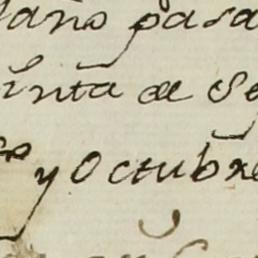 año pasa
inta de Se
y Octubre